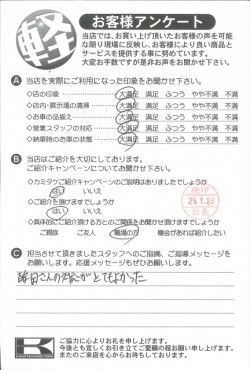 軽
お客様アンケート
当店では、お買い上げ頂いたお客様の声を可能
な限り現場に反映し、お客様により良い商品と
サービスを提供する事に努めています。
大変お手数ですが是非お声をお聞かせ下さい。
A 当店を実際にご利用になった印象をお聞かせ下さい。
◇店の印象 大満足 満足 ふつう やや不満 不満
◇店内・展示場の清掃 大満足 満足 ふつう やや不満 不満
◇お車の品揃え 大満足 満足 ふつう やや不満 不満
◇営業スタッフの対応 大満足 満足 ふつう やや不満 不満
◇納車時のお車の状態 大満足 満足 ふつう やや不満 不満
B 当店はご紹介を大切にしております。
ご紹介キャンペーンについてお聞かせ下さい。
◇カミタケご紹介キャンペーンのご説明はありましたでしょうか
はい いいえ
◇ご紹介を頂けますでしょうか
はい いいえ
◇具体的にご紹介頂ける方とのご関係をお聞かせ頂けますでしょうか
ご親族 ご友人 職場の方 機会があれば紹介したい
検印
社長
C 担当させて頂きましたスタッフへのご指摘、ご指導メッセージを
お願いします。応援メッセージもぜひお願い致します。
さんの対応がとてもよかった
K
ご協力に心よりお礼を申し上げます。
今後とも宜しくお引き立てご愛顧の程お願い申し上げます。
またのご来店を心からお待ちしております。